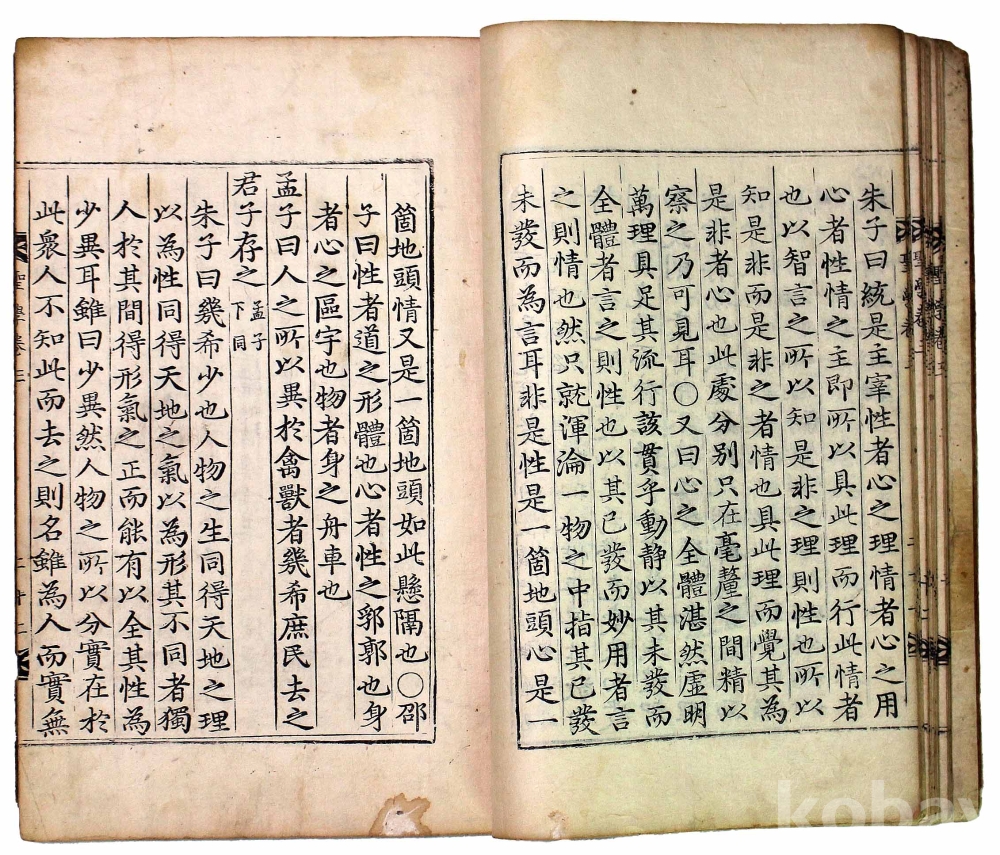 朱子曰統是主宰性者心之理情者心之用
心者性情之主即所以具此理而行此情者
也以智言之所以知是非之理則性也所以
知是非而是非之者情也具此理而覺其為
是非者心也此處分別只在毫釐之間精以
察之乃可見耳○又曰心之全體湛然虛明
萬理具足其流行該貫乎動静以其未發而
全體者言之則性也以其已發而妙用者言
之則情也然只就渾淪一物之中指其已發
未發而為言耳非是性是一箇地頭心是一
箇地頭情又是一箇地頭如此懸隔也○邵
子曰性者道之形體也心者性之郛郭也身
者心之區宇也物者身之舟車也
孟子曰人之所以異於禽獸者幾希庶民去之
君子存之孟子下同
朱子曰幾希少也人物之生同得天地之理
以為性同得天地之氣以為形其不同者獨
人於其間得形氣之正而能有以全其性為
少異耳雖曰少異然人物之所以分實在於
此衆人不知此而去之則名雖為人而實無
聖學卷三
kobay